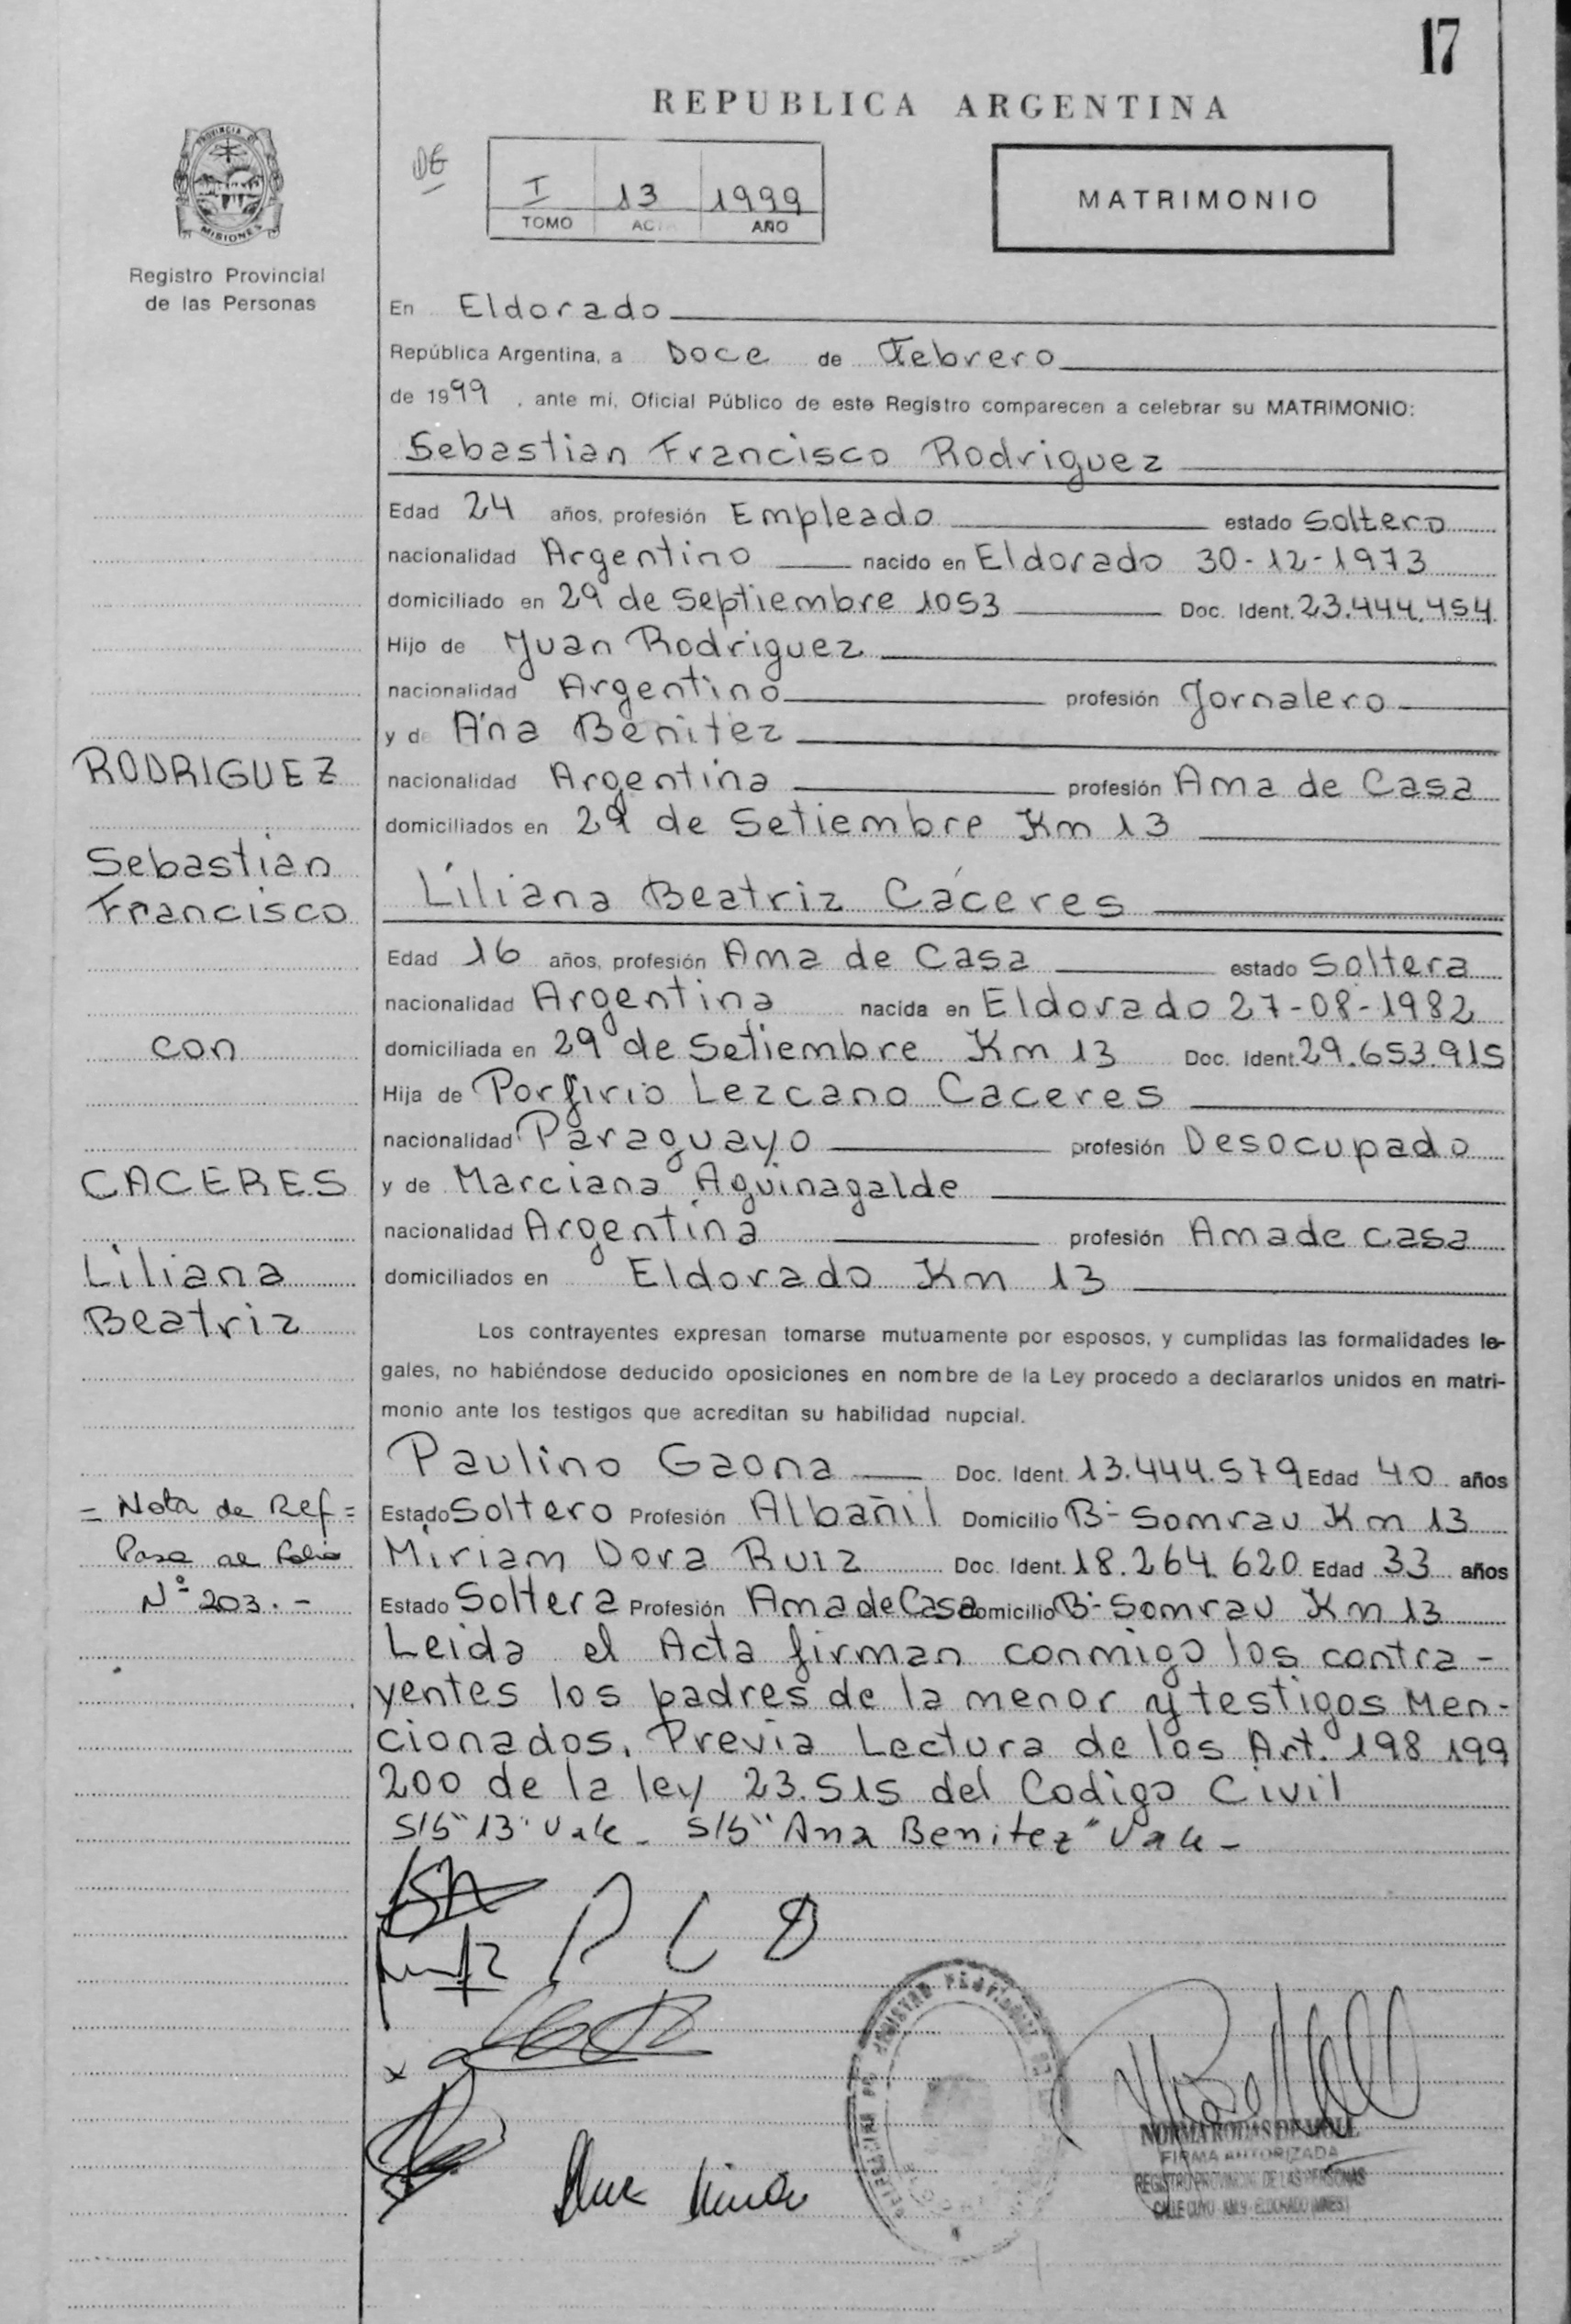 17
REPUBLICA ARGENTINA
PROVINCIA DE
MISIONES
Registro Provincial
de las Personas
DE
I 13 1999
TOMO ACTA AÑO
MATRIMONIO
En Eldorado
República Argentina, a Doce de Febrero
de 1999, ante mí, Oficial Público de este Registro comparecen a celebrar su MATRIMONIO:
Sebastian Francisco Rodriguez
Edad 24 años, profesión Empleado estado Soltero
nacionalidad Argentino nacido en Eldorado 30-12-1973
domiciliado en 29 de Septiembre 1053 Doc. Ident. 23.444.454
Hijo de Juan Rodriguez
nacionalidad Argentino profesión Jornalero
y de Ana Benitez
nacionalidad Argentina profesión Ama de Casa
domiciliados en 29 de Setiembre Km 13
Liliana Beatriz Cáceres
Edad 16 años, profesión Ama de Casa estado Soltera
nacionalidad Argentina nacida en Eldorado 27-08-1982
domiciliada en 29 de Setiembre Km 13 Doc. Ident. 29.653.915
Hija de Porfirio Lezcano Caceres
nacionalidad Paraguayo profesión Desocupado
y de Marciana Aguinagalde
nacionalidad Argentina profesión Ama de casa
domiciliados en Eldorado Km 13
Los contrayentes expresan tomarse mutuamente por esposos, y cumplidas las formalidades le-
gales, no habiéndose deducido oposiciones en nombre de la Ley procedo a declararlos unidos en matri-
monio ante los testigos que acreditan su habilidad nupcial.
Paulino Gaona Doc. Ident. 13.444.579 Edad 40 años
Estado Soltero Profesión Albañil Domicilio B- Somrau Km 13
Miriam Dora Ruiz Doc. Ident. 18.264.620 Edad 33 años
Estado Soltera Profesión Ama de Casa Domicilio B- Somrau Km 13
Leida el Acta firman conmigo los contra-
yentes los padres de la menor y testigos Men-
cionados. Previa Lectura de los Art. 198 199
200 de la ley 23.515 del Codigo Civil
S/b "13" Vale - S/b "Ana Benitez" Vale -
RODRIGUEZ
Sebastian
Francisco
con
CACERES
Liliana
Beatriz
= Nota de Ref =
Pasa al folio
Nº 203.-
NORMA RODAS DE MOLL
FIRMA AUTORIZADA
REGISTRO PROVINCIAL DE LAS PERSONAS
CALLE CUYO - KM. 9 - ELDORADO (MNES)